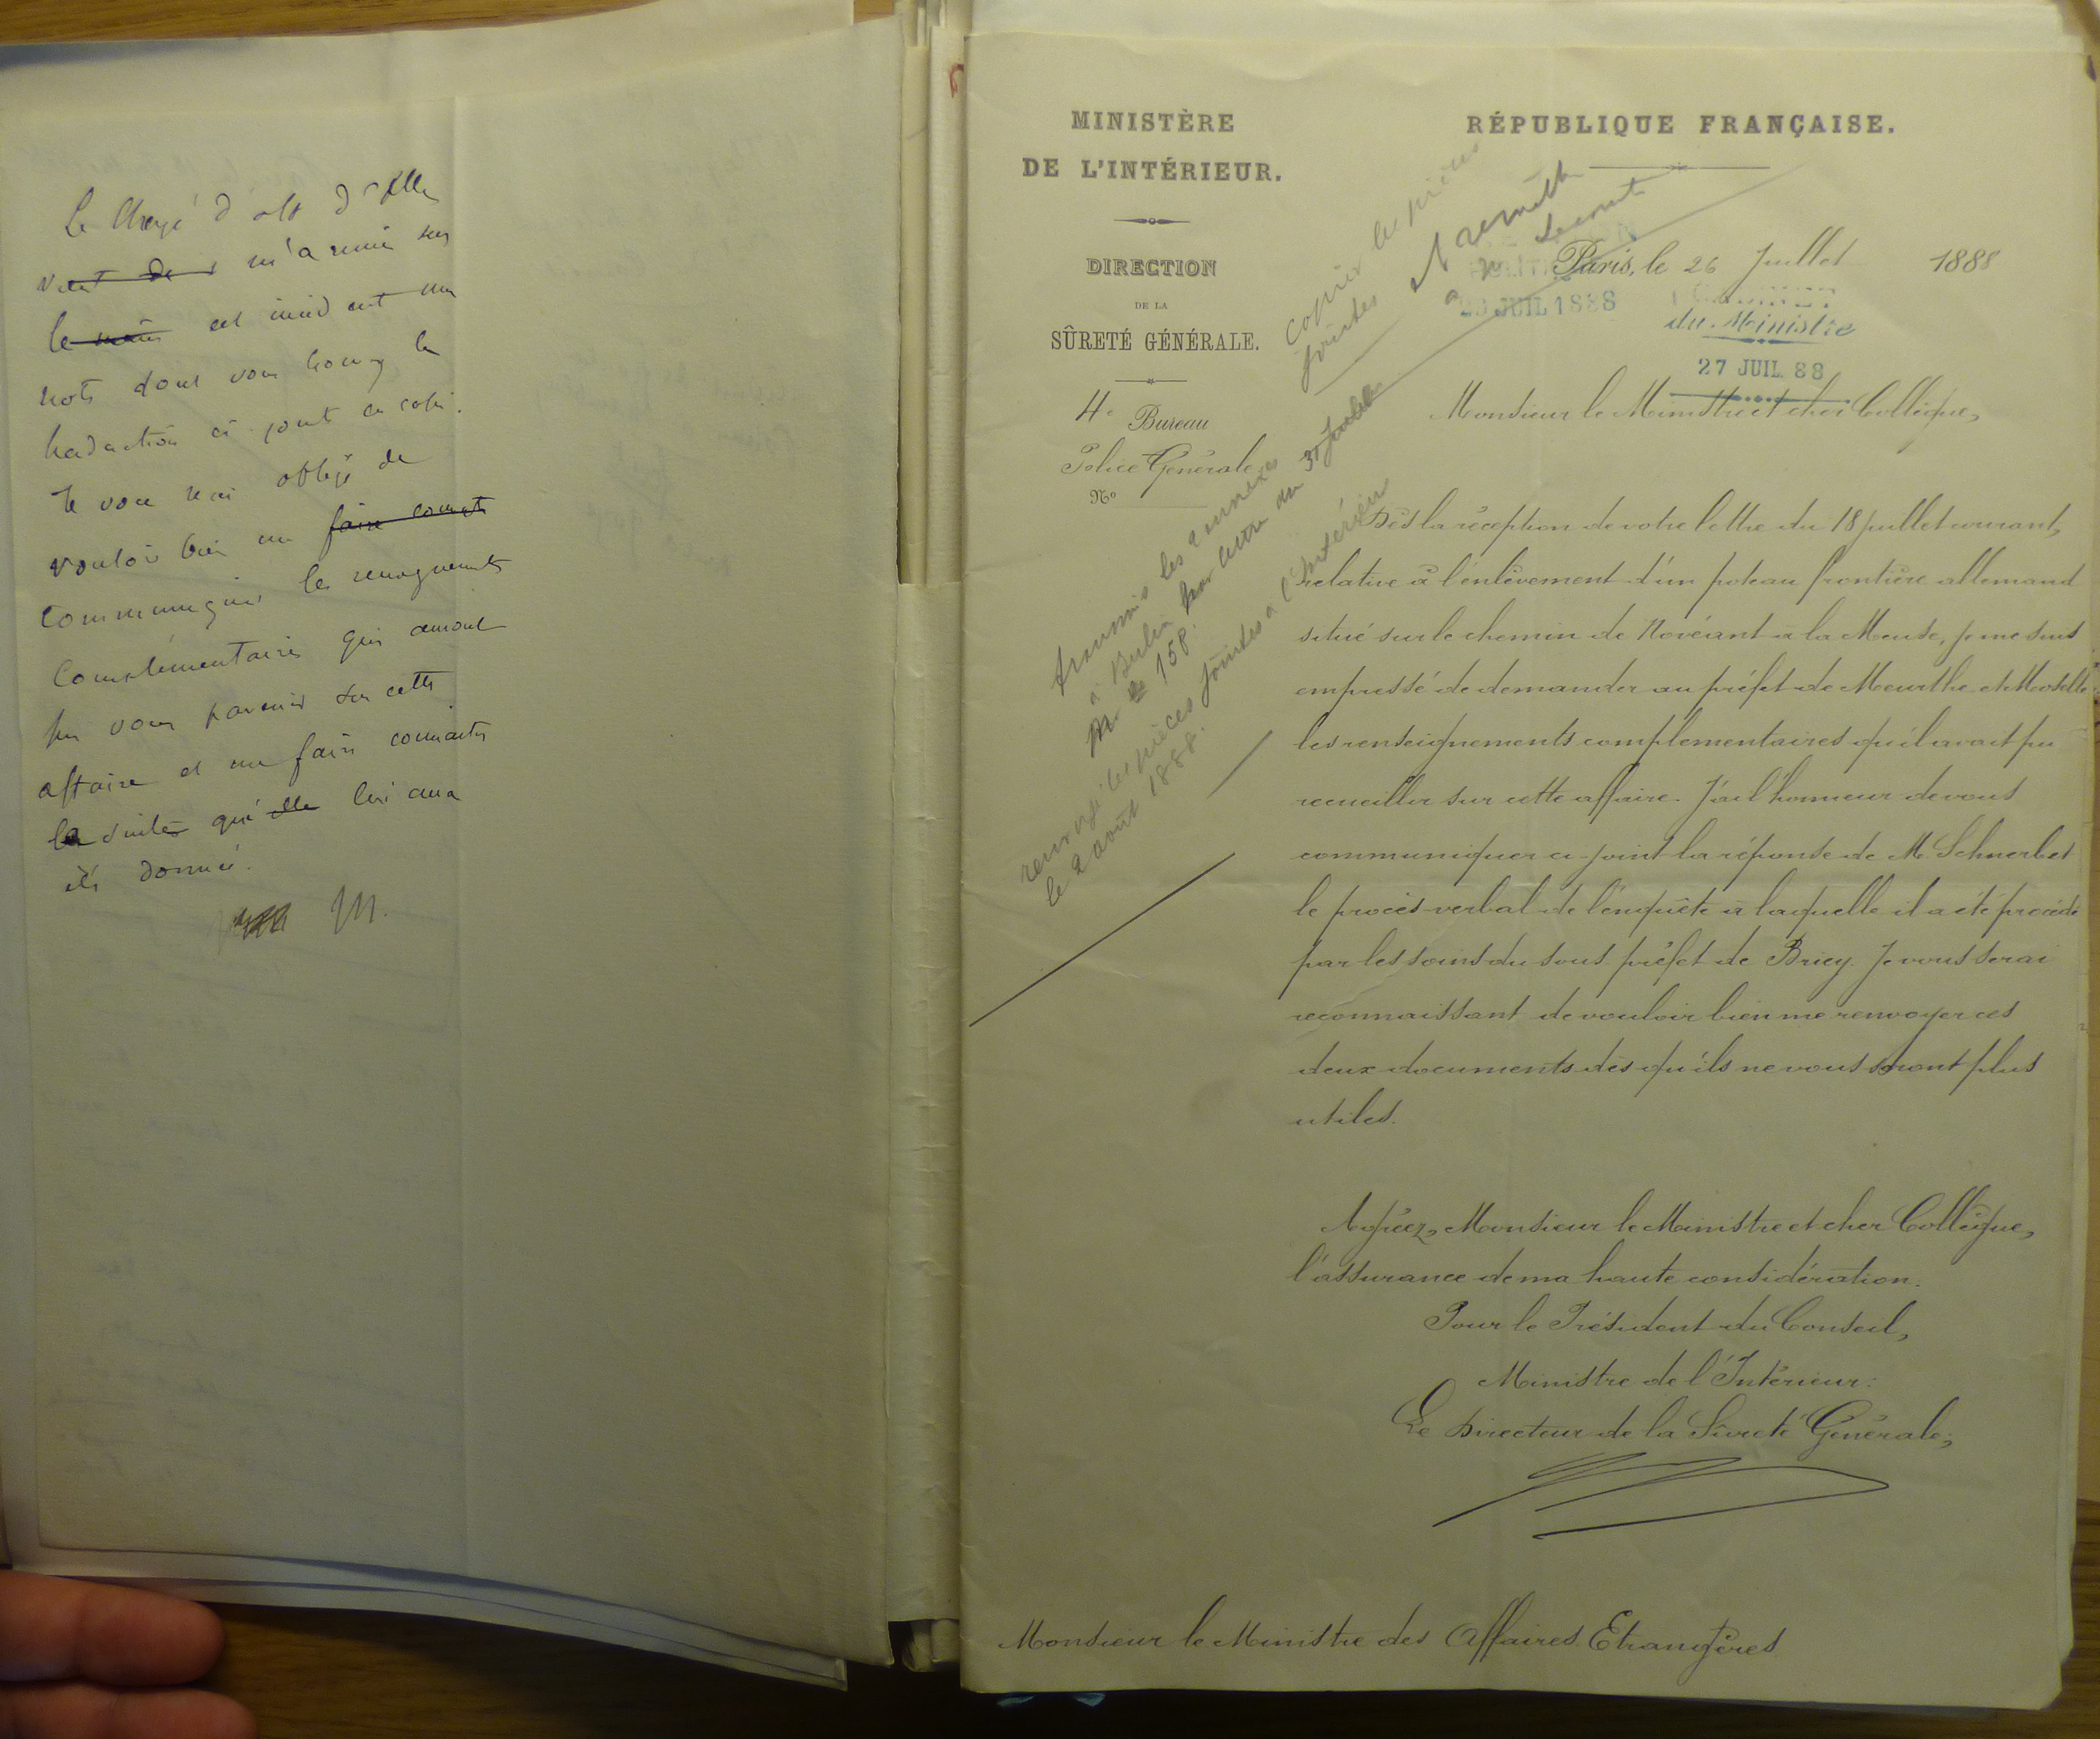 Le Chargé d'aff d'All
vient de m'a remis sur
le cet incident une
note dont vous trouvez la
traduction ci-joint en copie.
Je vous serai obligé de
vouloir bien me faire connaît
communiquer les renseignements
complémentaires qui auront
pu vous parvenir sur cette
affaire et me faire connaître
la suite qui elle lui aura
été donnée.
M.
MINISTÈRE
DE L'INTÉRIEUR.
DIRECTION
DE LA
SÛRETÉ GÉNÉRALE.
4e Bureau
Police Générale
No
RÉPUBLIQUE FRANÇAISE.
copier les pièces
jointes
Paris, le 26 Juillet 1888
JUIL 1888
CABINET
du Ministre
27 JUIL 88
transmis les 2 annexes
à Berlin par lettre du 31 Juillet
No 158.
renvoyé les pièces jointes à l'Intérieur
le 2 août 1888.
Monsieur le Ministre et cher Collègue,
Dès la réception de votre lettre du 18 juillet courant,
relative à l'enlèvement d'un poteau frontière allemand
situé sur le chemin de Novéant à la Meuse, je me suis
empressé de demander au préfet de Meurthe et Moselle
les renseignements complémentaires qu'il avait pu
recueillir sur cette affaire. J'ai l'honneur de vous
communiquer ci-joint la réponse de M. Schnerb et
le procès-verbal de l'enquête à laquelle il a été procédé
par les soins du sous-préfet de Briey. Je vous serai
reconnaissant de vouloir bien me renvoyer ces
deux documents dès qu'ils ne vous seront plus
utiles.
Agréez, Monsieur le Ministre et cher Collègue,
l'assurance de ma haute considération.
Pour le Président du Conseil,
Ministre de l'Intérieur:
Le Directeur de la Sûreté Générale,
Monsieur le Ministre des Affaires Etrangères